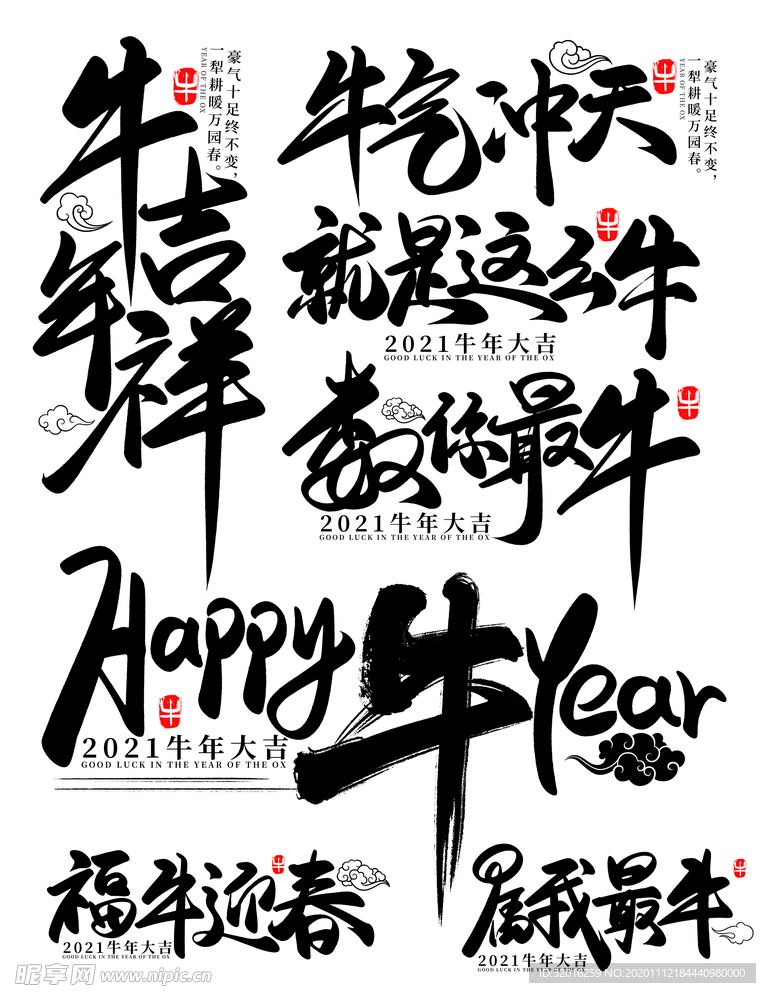 牛年吉祥
牛
豪气十足终不变，
一犁耕暖万园春。
YEAR OF THE OX
牛气冲天
牛
豪气十足终不变，
一犁耕暖万园春。
YEAR OF THE OX
就是这么牛
牛
2021牛年大吉
GOOD LUCK IN THE YEAR OF THE OX
数你最牛
牛
2021牛年大吉
GOOD LUCK IN THE YEAR OF THE OX
Happy牛Year
牛
2021牛年大吉
GOOD LUCK IN THE YEAR OF THE OX
福牛迎春
牛
2021牛年大吉
GOOD LUCK IN THE YEAR OF THE OX
属我最牛
牛
2021牛年大吉
GOOD LUCK IN THE YEAR OF THE OX
昵享网 www.nipic.cn
ID:32016259 NO:20201112184440980000